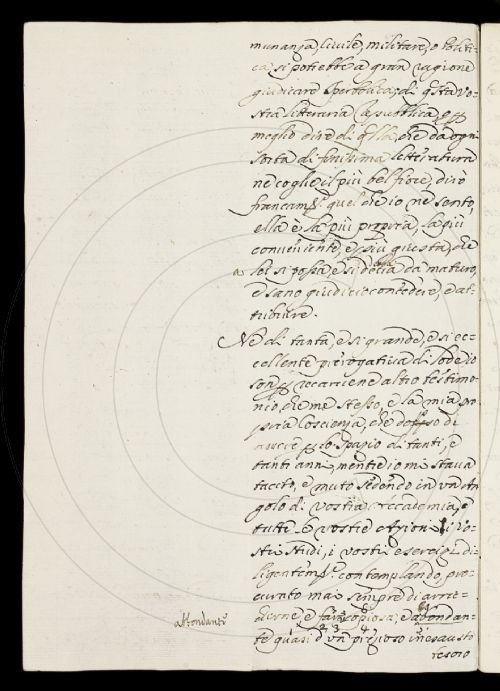 munanza, Civile, militare, o Politi-
ca, si potrebbe a gran ragione
giudicare Iperbolica; di q̃sta Vo-
stra litteraria Repubblica, o p
meglio dire di q̃lla, che da ogni
sorta di finissima letteratura
ne coglie il più bel fiore, dirò
francamte. quel che io ne sento,
ella è la più propria, la più
conveniente, e più giusta, che
le si possa, e si debba da maturo,
e sano giudicio concedere, e at-
tribuire.
Ne di tanta, e sì grande, e sì ec-
cellente prerogativa di lode io
son p recarvene altro testimo-
nio, che me stesso, e la mia pro-
pria Coscienza, che
avere p lo spazio di tanti, e
tanti anni, mentre io mi stava
tacito, e muto sedendo in un An-
golo di vostra Accademia, e
tutte le vostre Azioni, i vo-
stri studi, i vostri esercizi di-
ligentemte. contemplando, pro-
curato mai sempre di arric-
chirne, e far copiosa, e abondan-
abbondante
te quasi d'un prezioso inesausto
tesoro